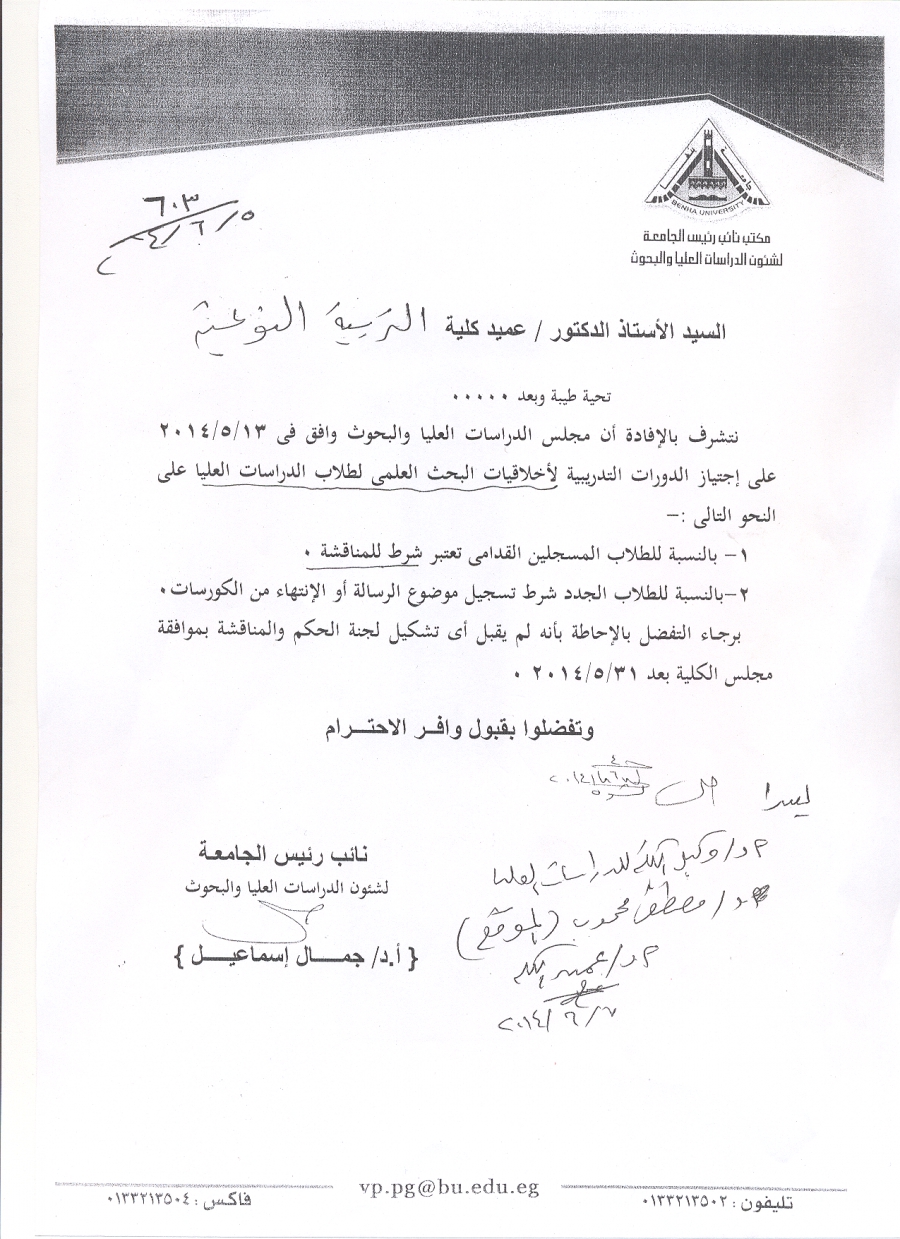 جامعة بنها
BENHA UNIVERSITY
مكتب نائب رئيس الجامعة
لشئون الدراسات العليا والبحوث
٦٠٣
٥/٦/
السيد الأستاذ الدكتور / عميد كلية التربية النوعية
تحية طيبة وبعد ٠٠٠٠٠
نتشرف بالإفادة أن مجلس الدراسات العليا والبحوث وافق فى ٢٠١٤/٥/١٣
على إجتياز الدورات التدريبية لأخلاقيات البحث العلمى لطلاب الدراسات العليا على
النحو التالى :-
١- بالنسبة للطلاب المسجلين القدامى تعتبر شرط للمناقشة ٠
٢-بالنسبة للطلاب الجدد شرط تسجيل موضوع الرسالة أو الإنتهاء من الكورسات٠
برجاء التفضل بالإحاطة بأنه لم يقبل أى تشكيل لجنة الحكم والمناقشة بموافقة
مجلس الكلية بعد ٢٠١٤/٥/٣١ ٠
وتفضلوا بقبول وافـر الاحتـرام
أ.د/ وكيل الكلية للدراسات العليا
د/ مصطفى (الموقع)
أ.د/ عميد الكلية
٢٠١٤/٦/٧
نائب رئيس الجامعة
لشئون الدراسات العليا والبحوث
{ أ.د/ جمـــال إسماعيـــل }
تليفون : ٠١٣٣٢١٣٥٠٢
vp.pg@bu.edu.eg
فاكس : ٠١٣٣٢١٣٥٠٤